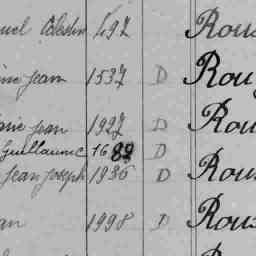 uel Célestin 497 Rous
ine Jean 1537 D Roug
arie Jean 1927 D Rou
Guillaume 1682 D
Jean Joseph 1936 D Rous
an 1998 D Rous